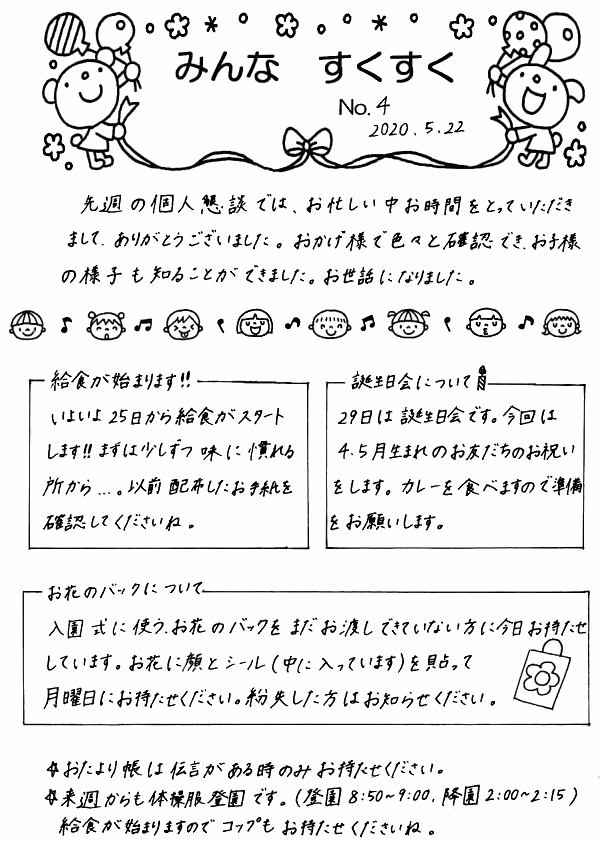 みんな すくすく
No. 4
2020. 5. 22
先週の個人懇談では、お忙しい中お時間をとっていただき
まして、ありがとうございました。おかげ様で色々と確認でき、お子様
の様子も知ることができました。お世話になりました。
給食が始まります!!
いよいよ25日から給食がスタート
します!! まずは少しずつ味に慣れる
所から…。以前配布したお手紙を
確認してくださいね。
誕生日会について
29日は誕生日会です。今回は
4.5月生まれのお友だちのお祝い
をします。カレーを食べますので準備
をお願いします。
お花のバックについて
入園式に使う、お花のバックをまだお渡しできていない方に今日お持たせ
しています。お花に顔とシール(中に入っています)を貼って
月曜日にお持たせください。紛失した方はお知らせください。
おたより帳は伝言がある時のみお持たせください。
来週からも体操服登園です。(登園 8:50~9:00, 降園 2:00~2:15)
給食が始まりますのでコップもお持たせくださいね。